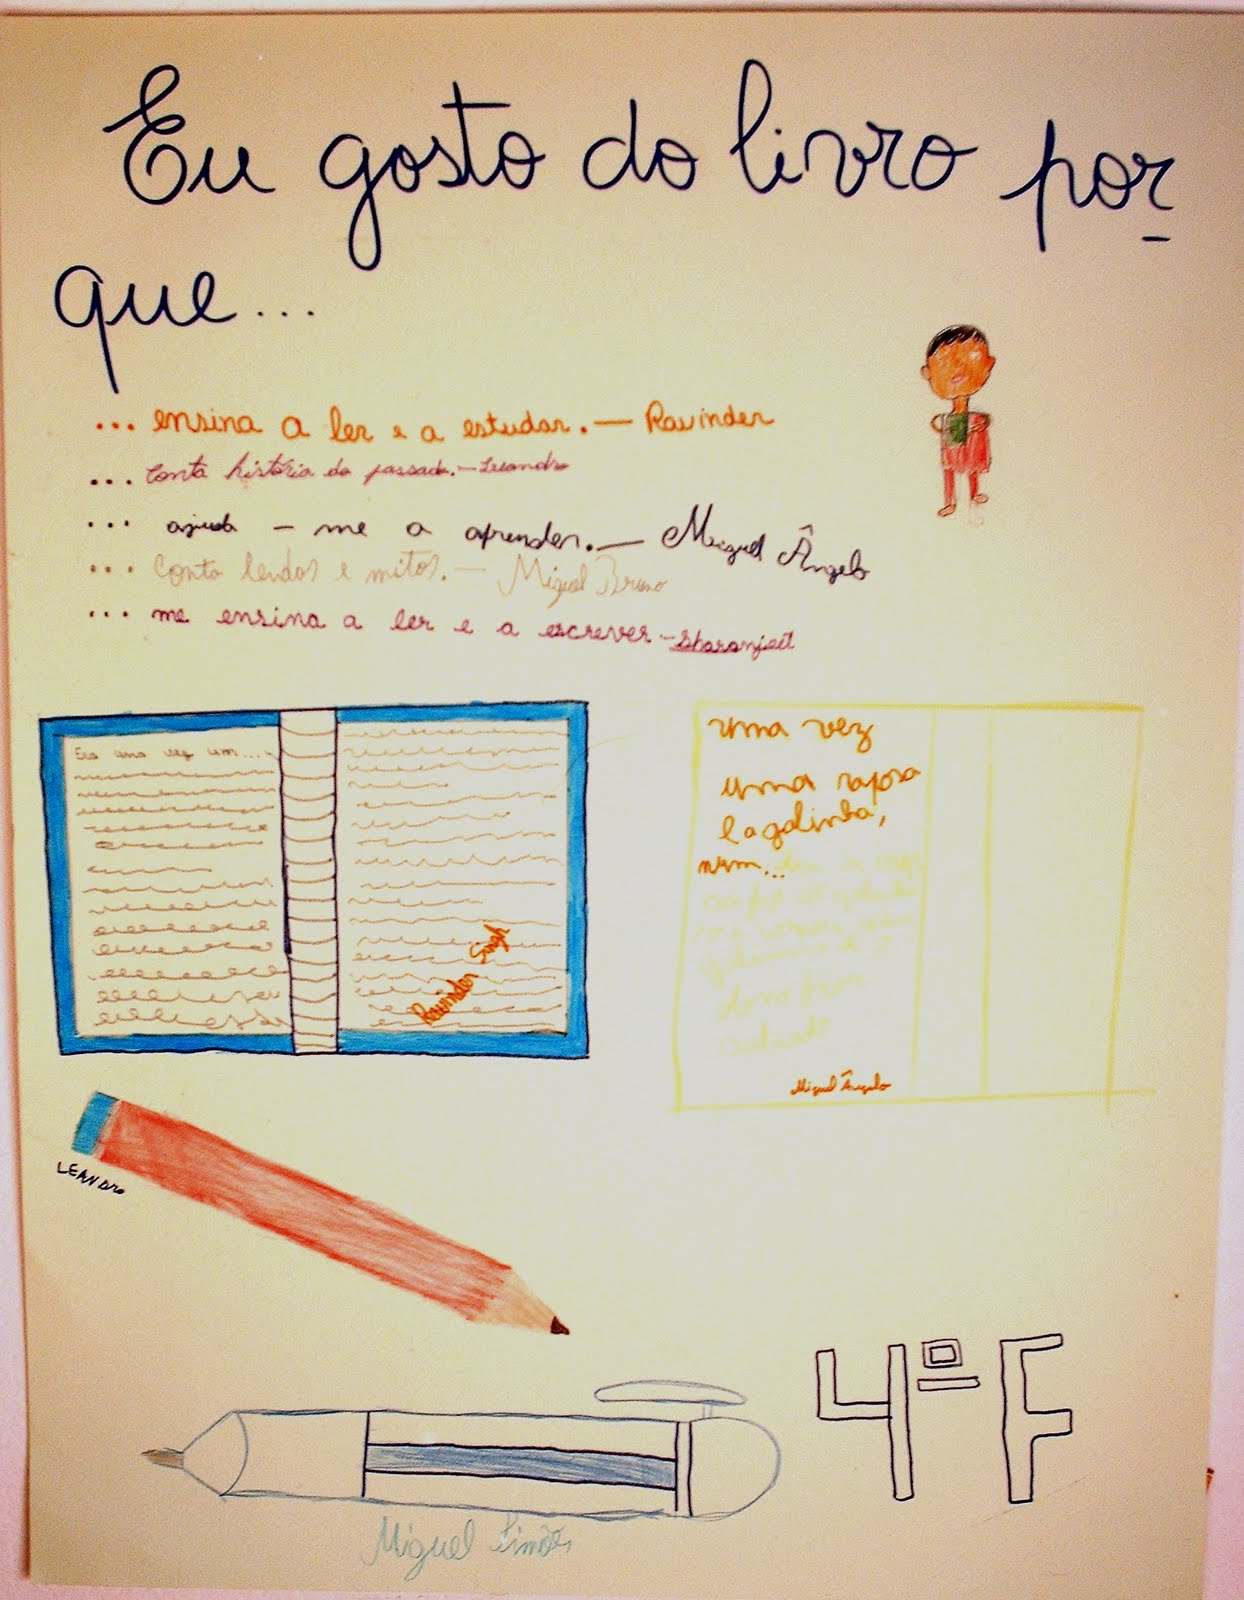 Eu gosto do livro por
que...
... ensina a ler e a estudar. — Ravinder
... Conta história do passado. — Leandro
... ajuda - me a aprender. — Miguel Ângelo
... Conta lendas e mitos. — Miguel Bruno
... me ensina a ler e a escrever - Sharanjeet
Era uma vez um...
Ravinder Singh
uma vez
uma raposa
e a galinha,
num...
Miguel Ângelo
LEANDro
4º F
Miguel Simões